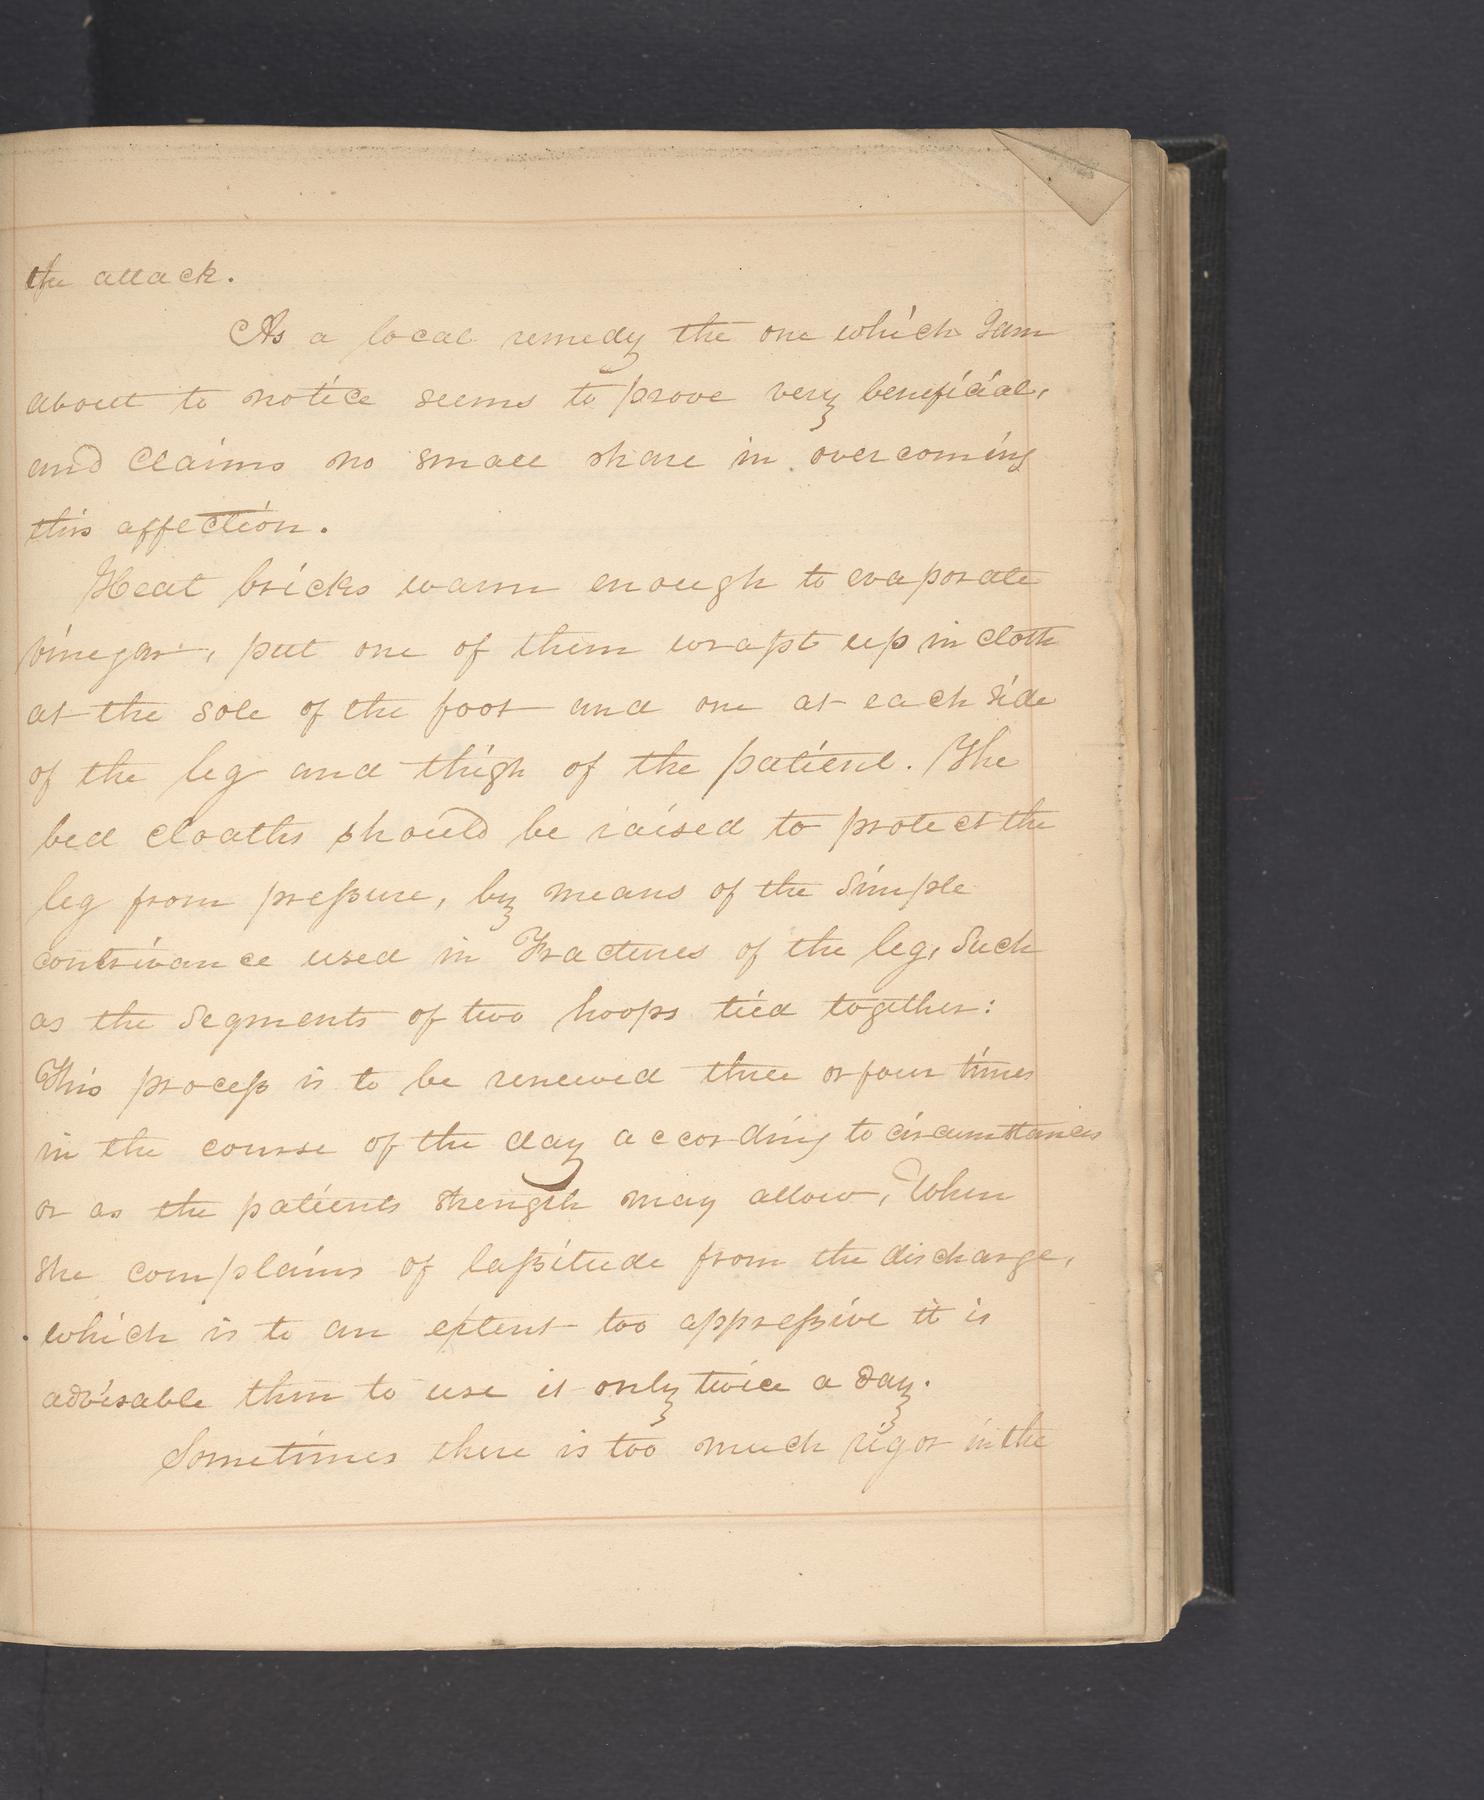 the attack.
As a local remedy the one which I am
about to notice seems to prove very beneficial,
and claims no small share in overcoming
this affection.
Heat bricks warm enough to evaporate
vinegar, put one of them wrapt up in cloth
at the sole of the foot and one at each side
of the leg and thigh of the patient. The
bed cloaths should be raised to protect the
leg from pressure, by means of the simple
contrivance used in Fractures of the leg, such
as the segments of two hoops tied together:
This process is to be renewed three or four times
in the course of the day according to circumstances
or as the patients strength may allow, When
she complains of lassitude from the discharge,
which is to an extent too oppressive it is
advisable then to use it only twice a day.
Sometimes there is too much rigor in the